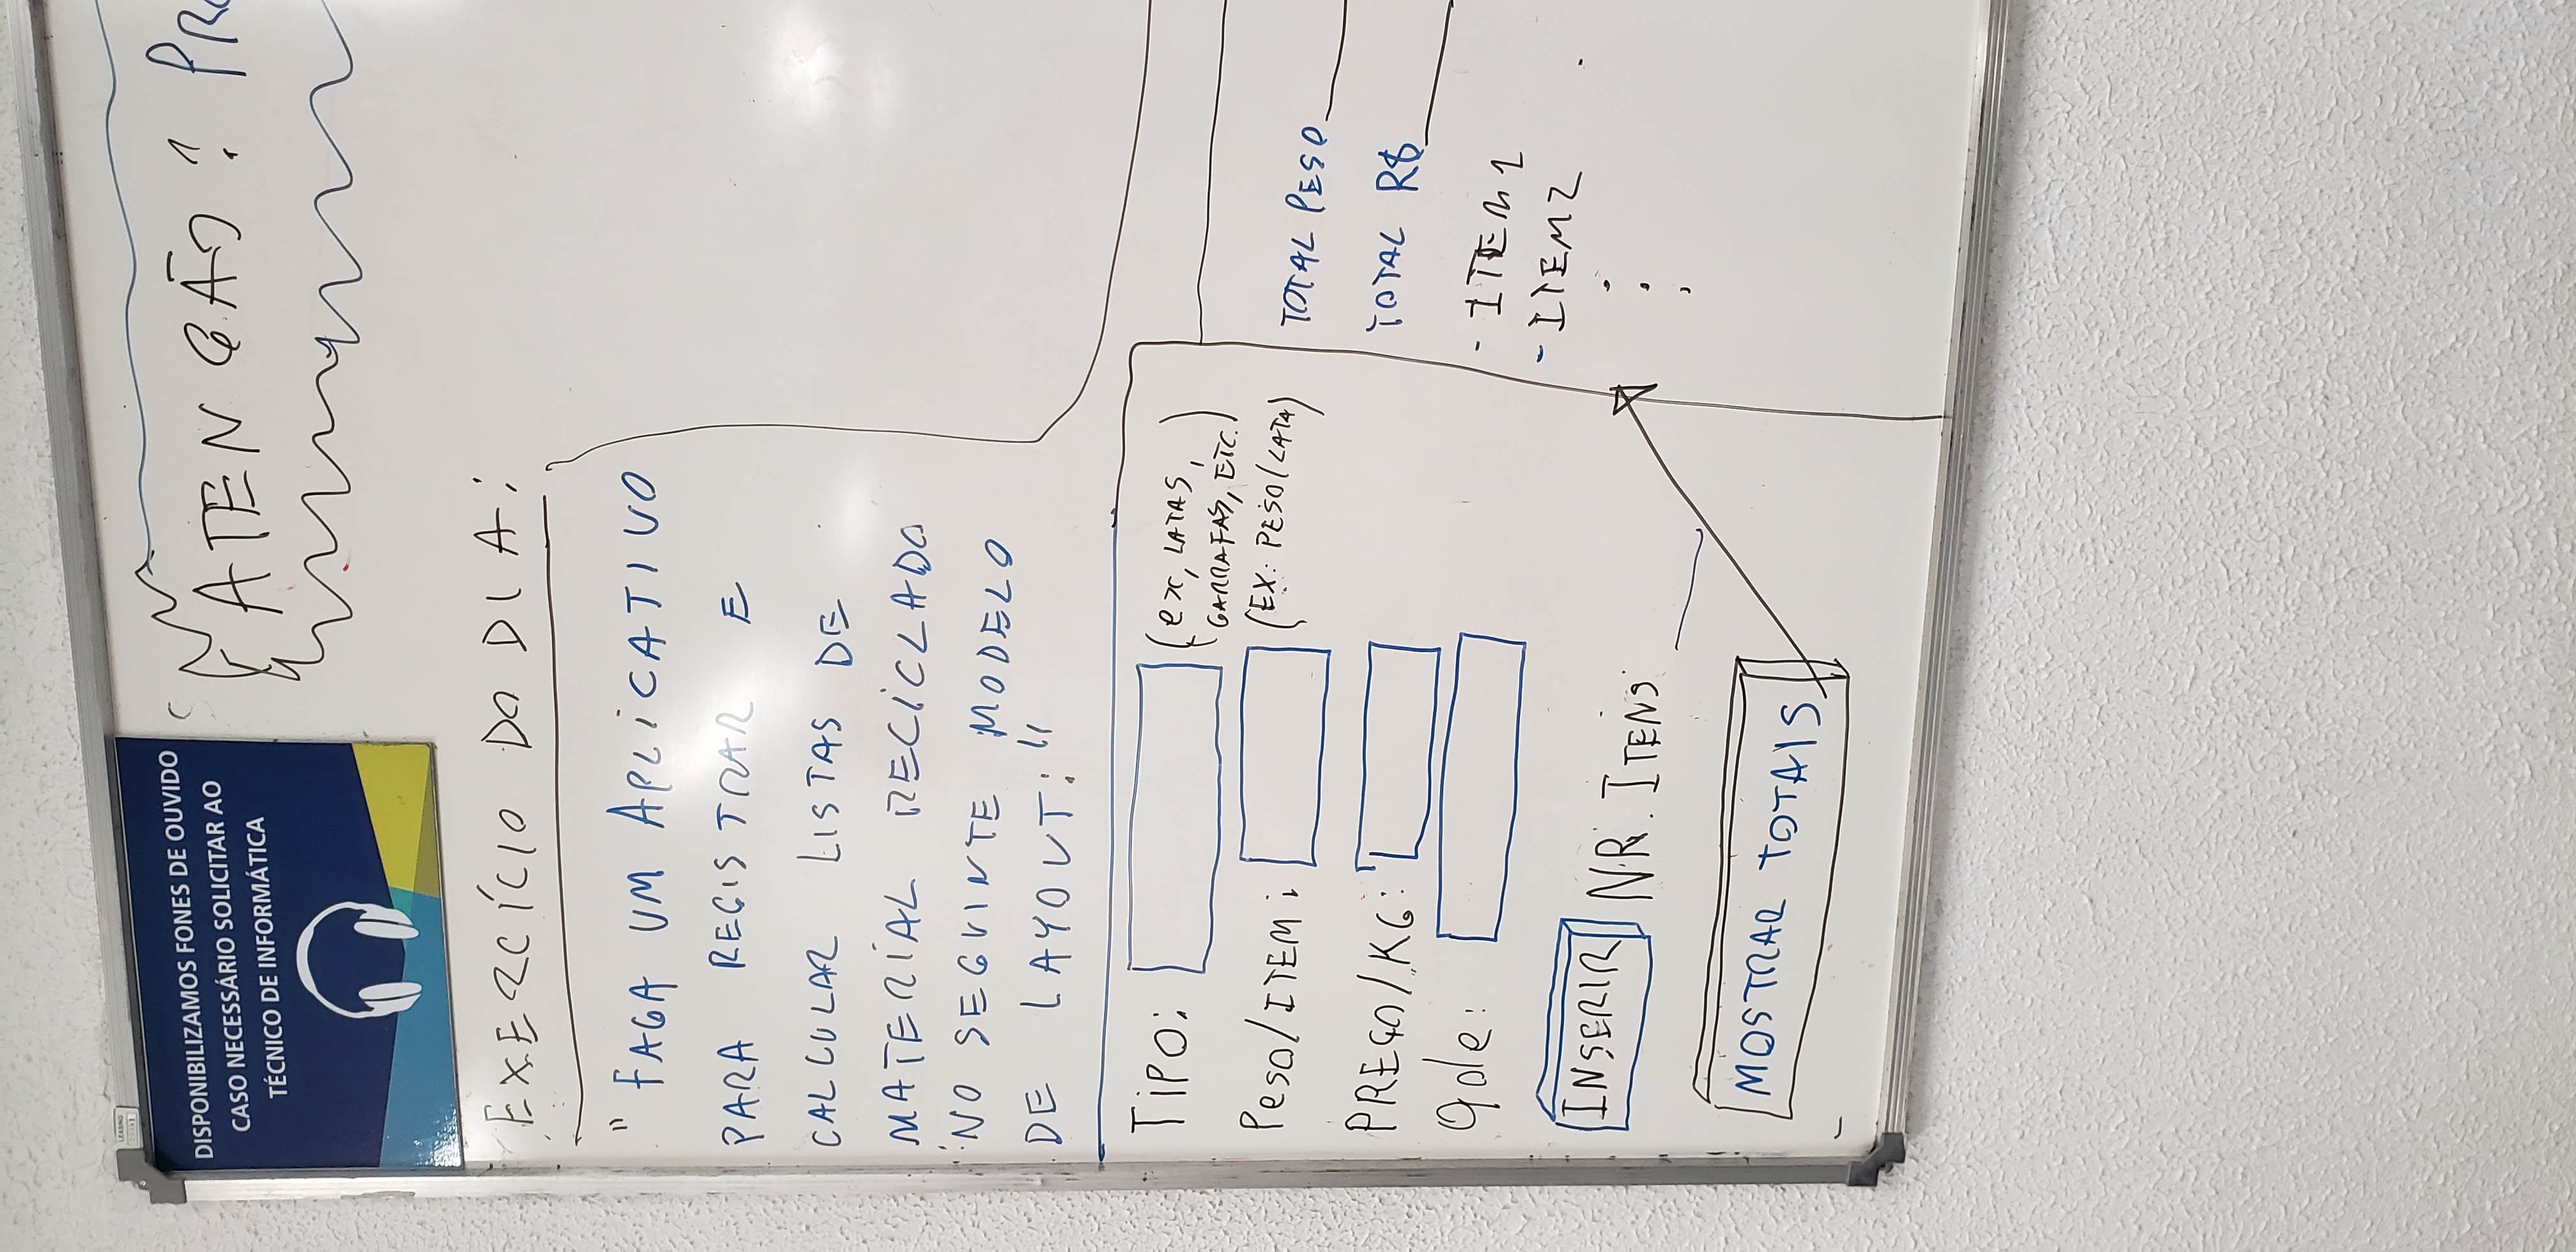 LEASING
DISPONIBILIZAMOS FONES DE OUVIDO
CASO NECESSÁRIO SOLICITAR AO
TÉCNICO DE INFORMÁTICA
ATENÇÃO!
EXERCÍCIO DO DIA:
"FAÇA UM APLICATIVO
PARA REGISTRAR E
CALCULAR LISTAS DE
MATERIAL RECICLADO
NO SEGUINTE MODELO
DE LAYOUT:"
TIPO: (ex, LATAS,
GARRAFAS, ETC.)
Peso/ITEM: (EX: PESO/LATA)
PREÇO/KG:
Qde:
INSERIR NR. ITENS
MOSTRAR TOTAIS
TOTAL PESO
TOTAL R$
- ITEM 1
- ITEM 2